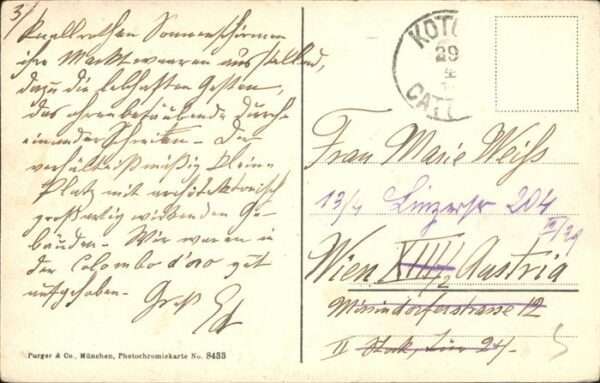 3/
knallroten Sonnenschirmen
ihre Marktwaren ausstellend,
dazu die lebhaften Gesten,
das ohrenbetäubende Durch-
einanderschreien. Der
verhältnißmäßig kleine
Platz mit architektonisch
großartig wirkenden Ge-
bäuden. Wir waren in
der Colombo d'oro gut
aufgehoben.
Gruß
Purger & Co., München, Photochromiekarte No. 8433
KOTO
29
CATT
Frau Marie Weiss
13/4 Linzerstr 204
II/29
Wien XIII/2 Austria
Missindorferstrasse 12
II Stock, Tür 24